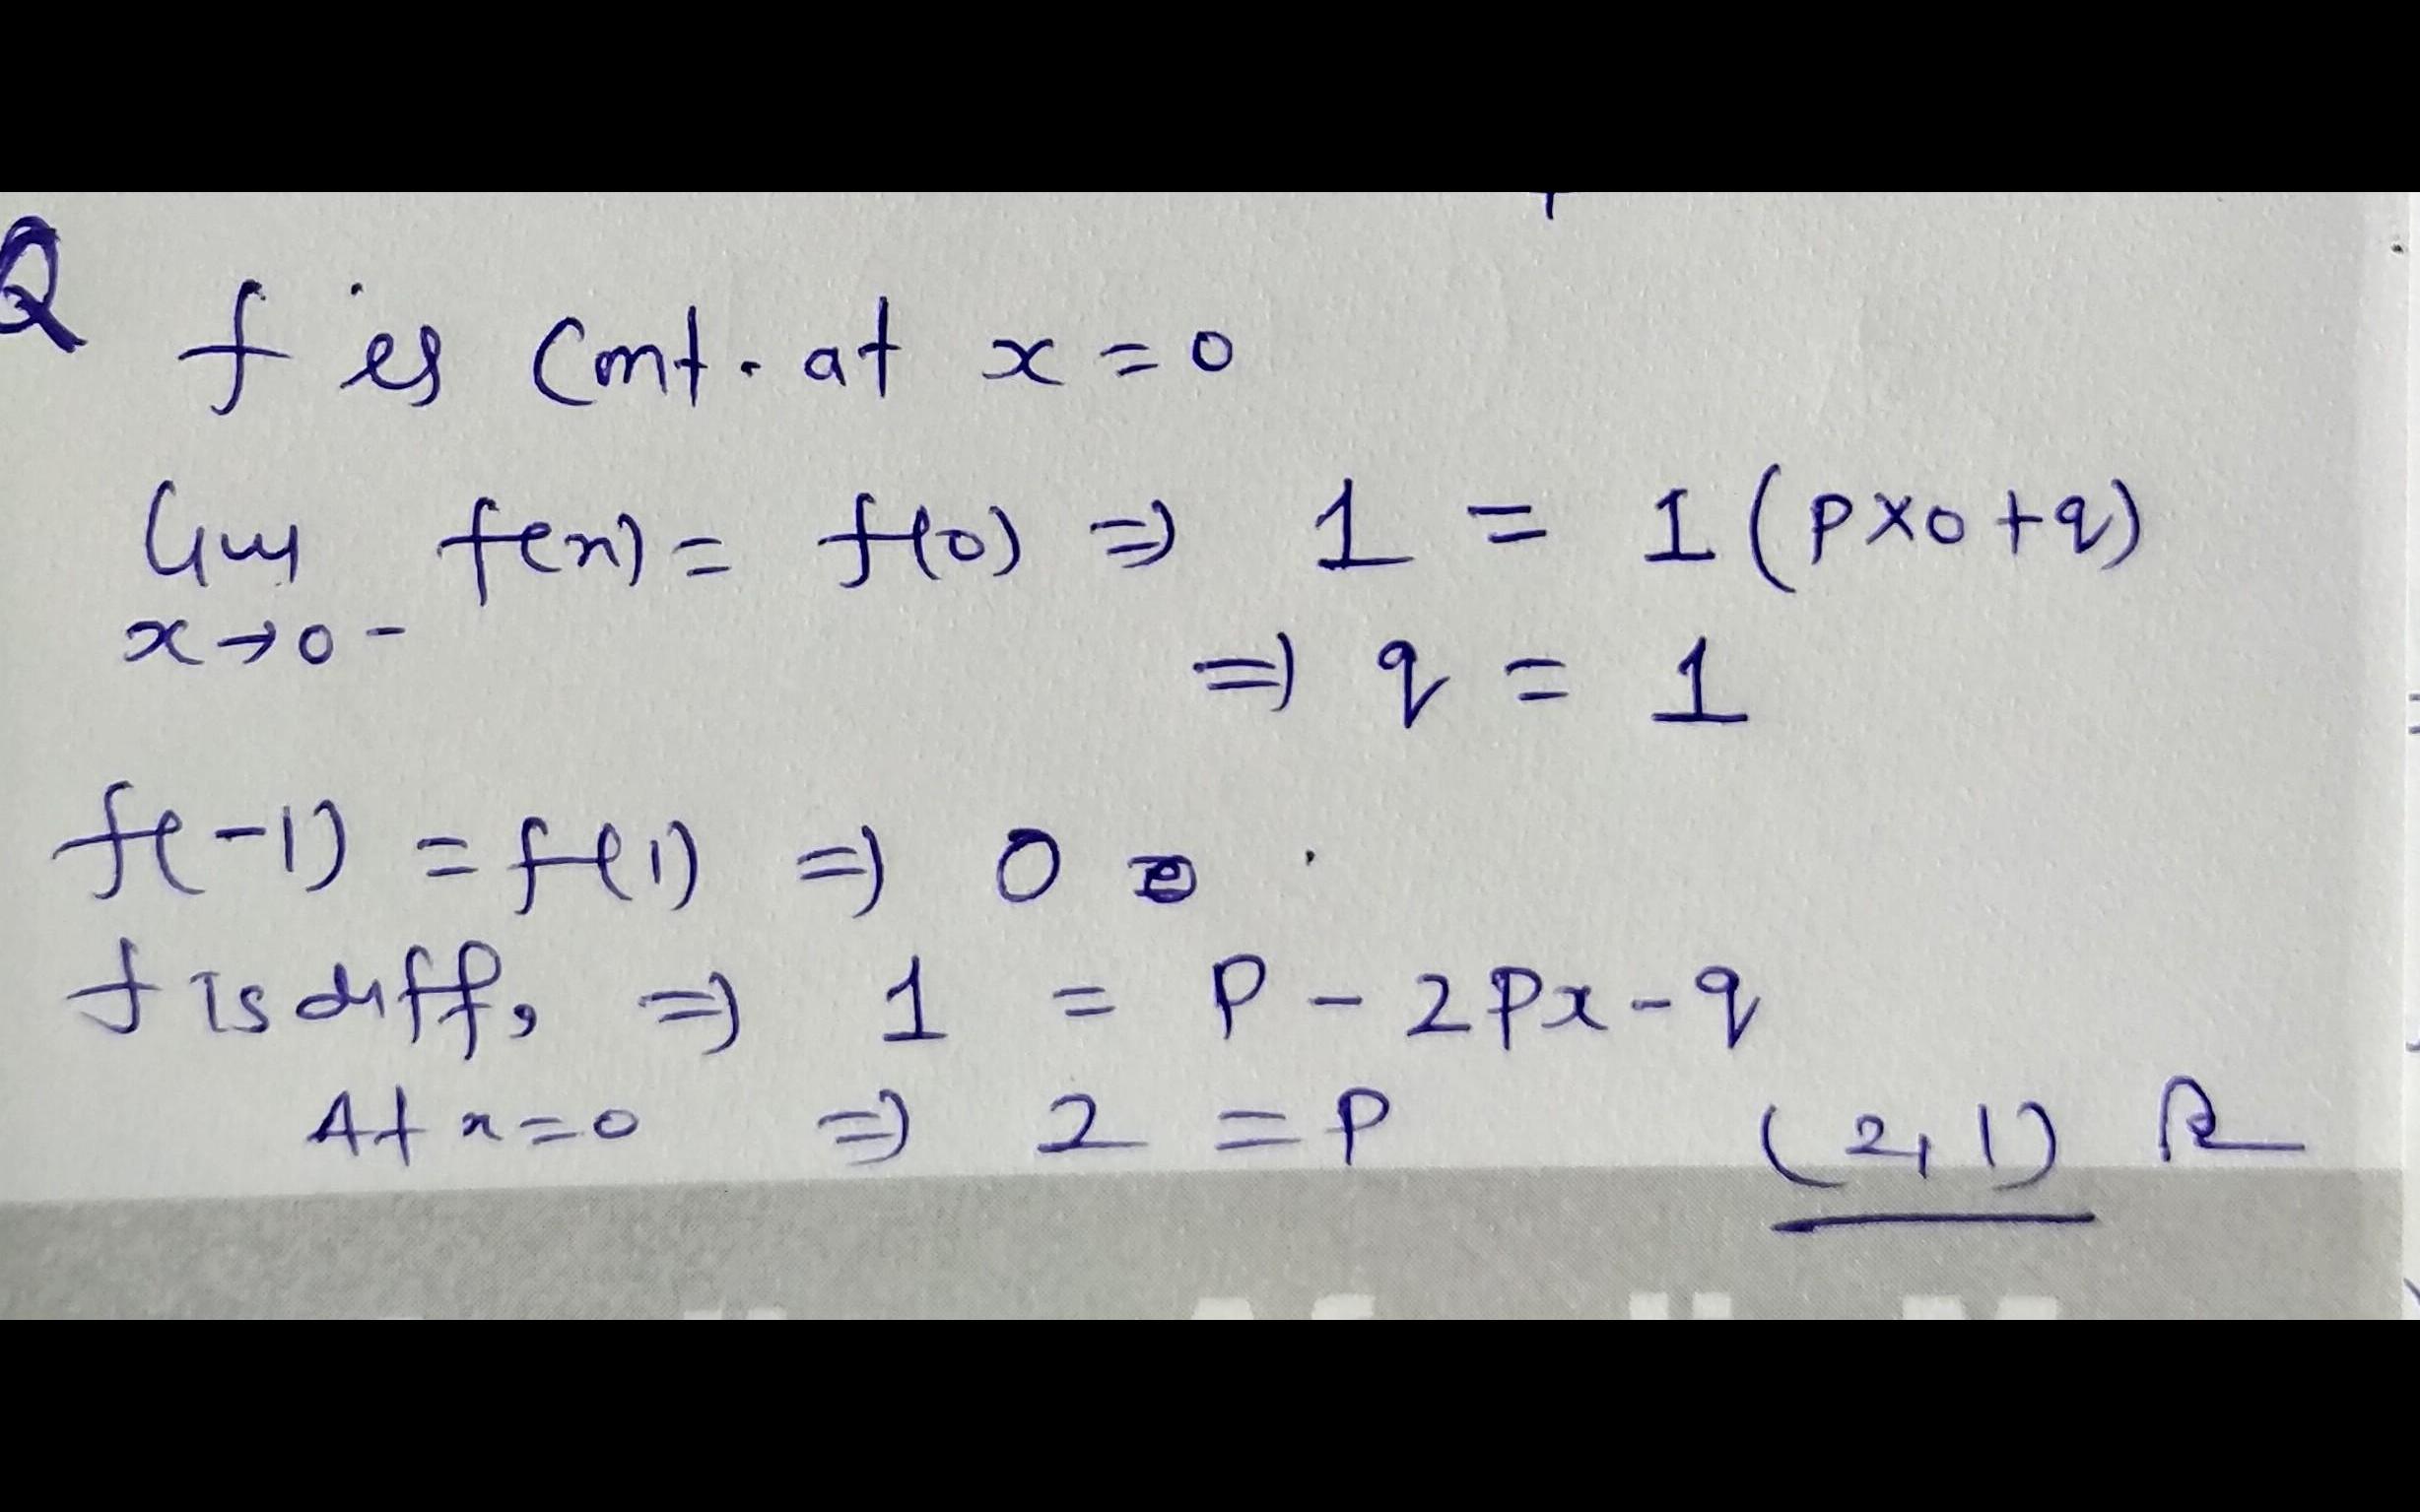 Q f is Cont. at x = 0
lim f(x) = f(0) ⇒ 1 = 1 (p×0+q)
x→0-
⇒ q = 1
f(-1) = f(1) ⇒ 0
f is diff, ⇒ 1 = p - 2px - q
At x=0 ⇒ 2 = p (2,1)